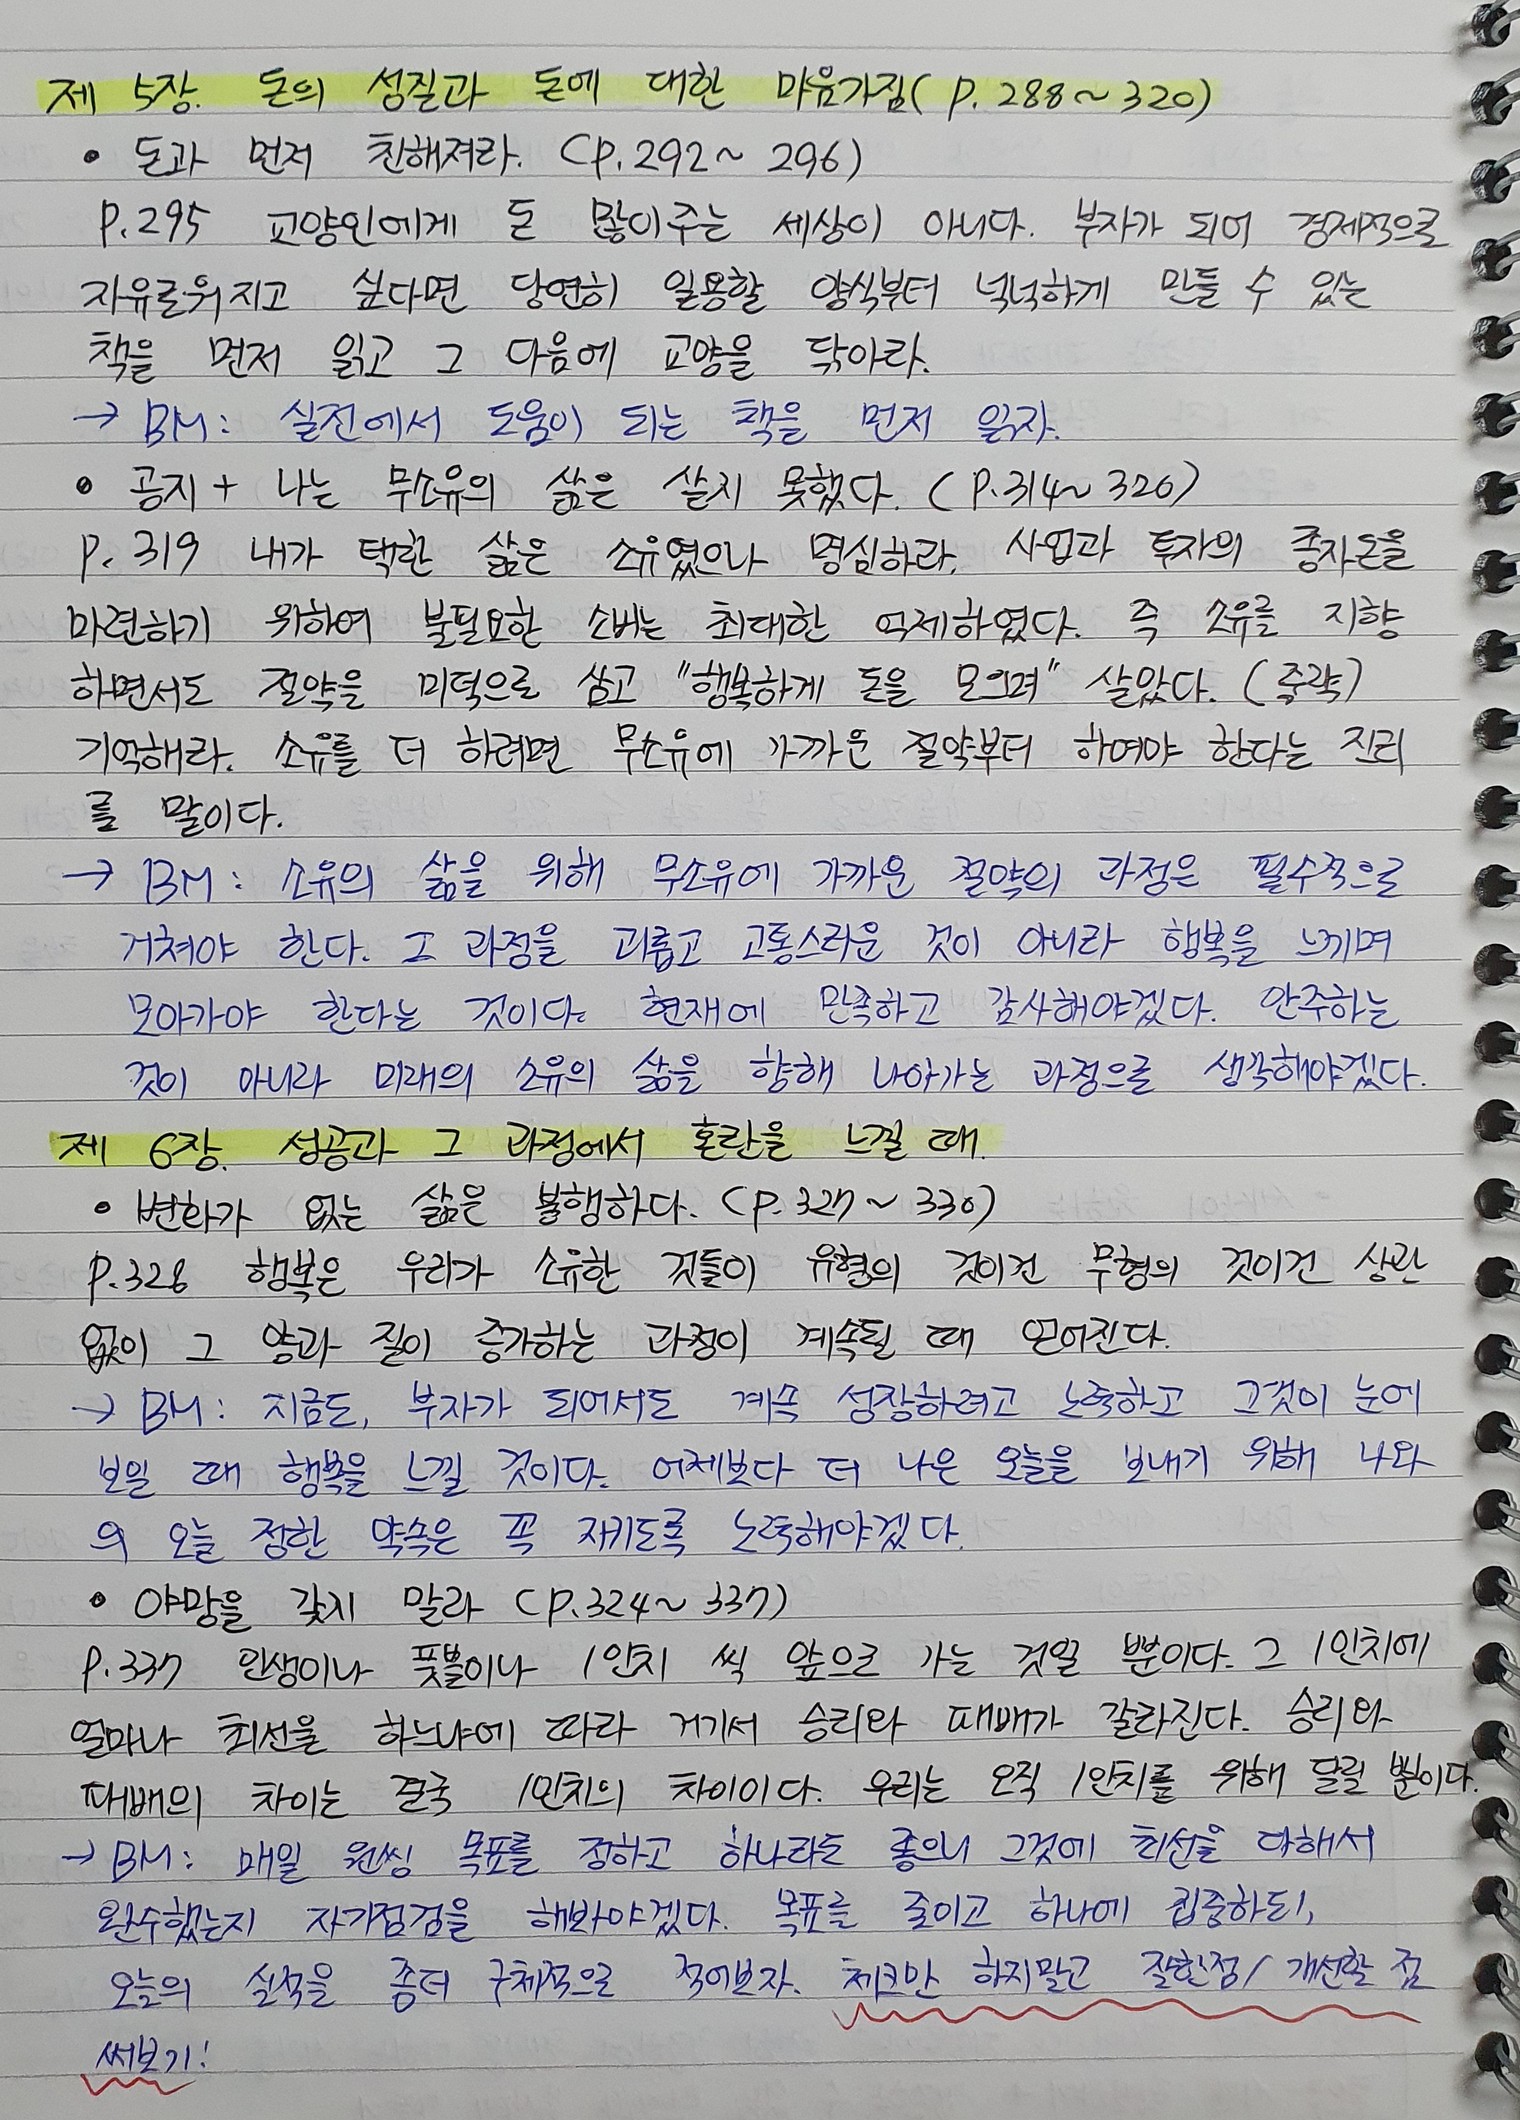 제 5장. 돈의 성질과 돈에 대한 마음가짐(P.288~320)
• 돈과 먼저 친해져라. (P.292~296)
P.295 교양인에게 돈 많이주는 세상이 아니다. 부자가 되어 경제적으로
자유로워지고 싶다면 당연히 일용할 양식부터 넉넉하게 만들 수 있는
책을 먼저 읽고 그 다음에 교양을 닦아라.
→ BM: 실전에서 도움이 되는 책을 먼저 읽자.
• 공지+ 나는 무소유의 삶은 살지 못했다. (P.314~320)
P.319 내가 택한 삶은 소유였으나 명심하라. 사업과 투자의 종자돈을
마련하기 위하여 불필요한 소비는 최대한 억제하였다. 즉 소유를 지향
하면서도 절약을 미덕으로 삼고 "행복하게 돈을 모으며" 살았다. (중략)
기억해라. 소유를 더 하려면 무소유에 가까운 절약부터 하여야 한다는 진리
를 말이다.
→ BM: 소유의 삶을 위해 무소유에 가까운 절약의 과정은 필수적으로
거쳐야 한다. 그 과정을 괴롭고 고통스러운 것이 아니라 행복을 느끼며
모아가야 한다는 것이다. 현재에 만족하고 감사해야겠다. 안주하는
것이 아니라 미래의 소유의 삶을 향해 나아가는 과정으로 생각해야겠다.
제 6장. 성공과 그 과정에서 혼란을 느낄 때.
• 변화가 없는 삶은 불행하다. (P.327~330)
P.328 행복은 우리가 소유한 것들이 유형의 것이건 무형의 것이건 상관
없이 그 양과 질이 증가하는 과정이 계속될 때 얻어진다.
→ BM: 지금도, 부자가 되어서도 계속 성장하려고 노력하고 그것이 눈에
보일 때 행복을 느낄 것이다. 어제보다 더 나은 오늘을 보내기 위해 나와
의 오늘 정한 약속은 꼭 지키도록 노력해야겠다.
• 야망을 갖지 말라 (P.324~337)
P.337 인생이나 풋볼이나 1인치 씩 앞으로 가는 것일 뿐이다. 그 1인치에
얼마나 최선을 하느냐에 따라 거기서 승리와 패배가 갈라진다. 승리와
패배의 차이는 결국 1인치의 차이이다. 우리는 오직 1인치를 위해 달릴 뿐이다.
→ BM: 매일 원씽 목표를 정하고 하나라도 좋으니 그것에 최선을 다해서
완수했는지 자기점검을 해봐야겠다. 목표를 줄이고 하나에 집중하되,
오늘의 실적을 좀더 구체적으로 적어보자. 체크만 하지말고 잘한점/개선할 점
써보기!